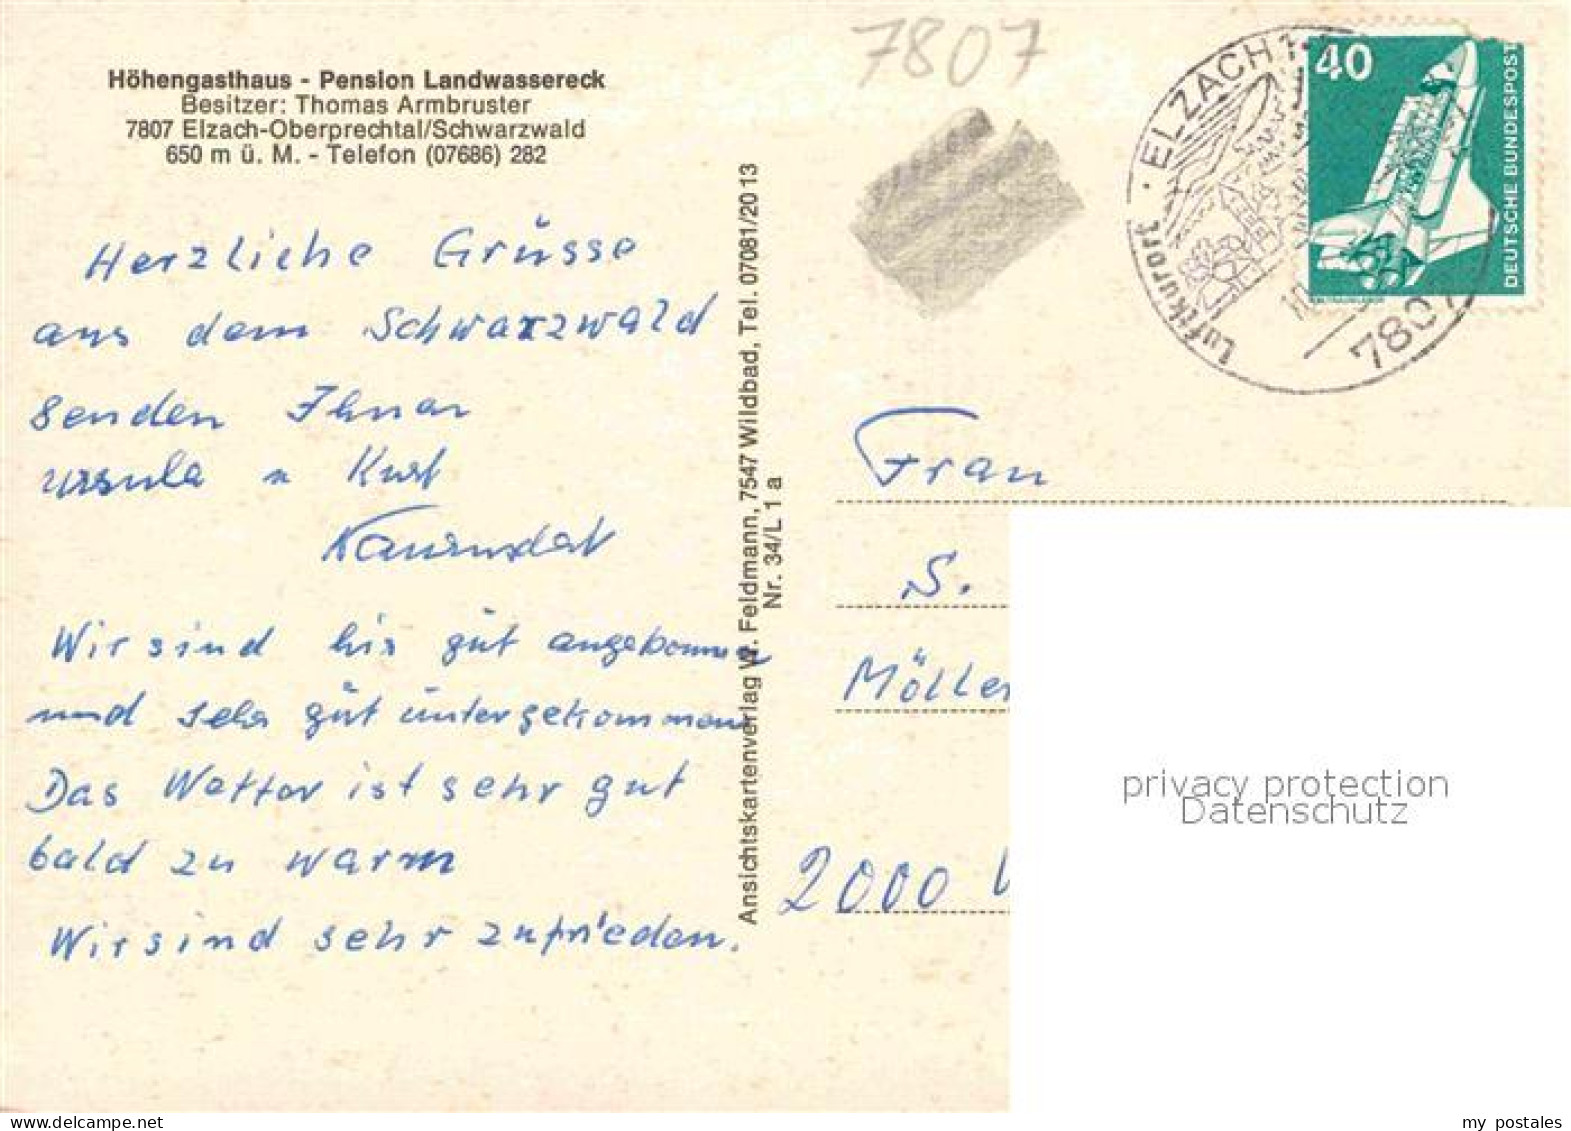 Höhengasthaus - Pension Landwassereck
Besitzer: Thomas Armbruster
7807 Elzach-Oberprechtal/Schwarzwald
650 m ü. M. - Telefon (07686) 282
Herzliche Grüsse
aus dem Schwarzwald
senden Ihnen
Ursula u Kurt
Wir sind hir gut angekommen
und sehr gut untergekommen
Das Wetter ist sehr gut
bald zu warm
Wir sind sehr zufrieden.
Ansichtskartenverlag W. Feldmann, 7547 Wildbad, Tel. 07081/20 13
Nr. 34/L 1 a
7807
Luftkurort · ELZACH 1
7807
40
DEUTSCHE BUNDESPOST
Frau
S.
Möller
2000
privacy protection
Datenschutz
my postales